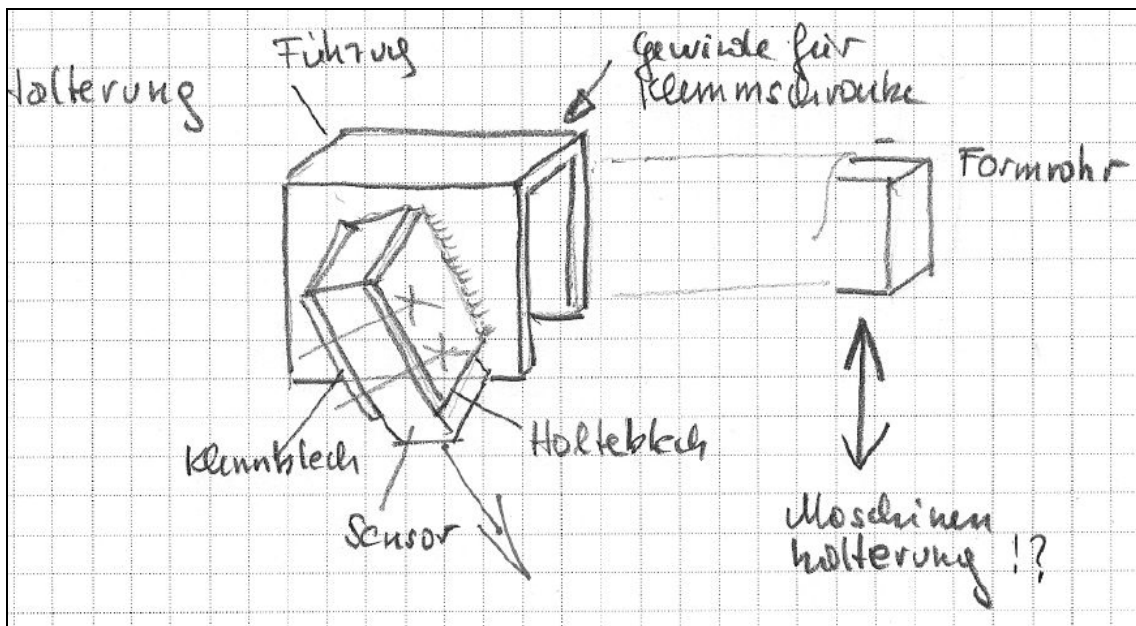 Halterung
Führung
Gewinde für
Klemmschraube
Formrohr
Klemmblech
Halteblech
Sensor
Maschinen
halterung !?